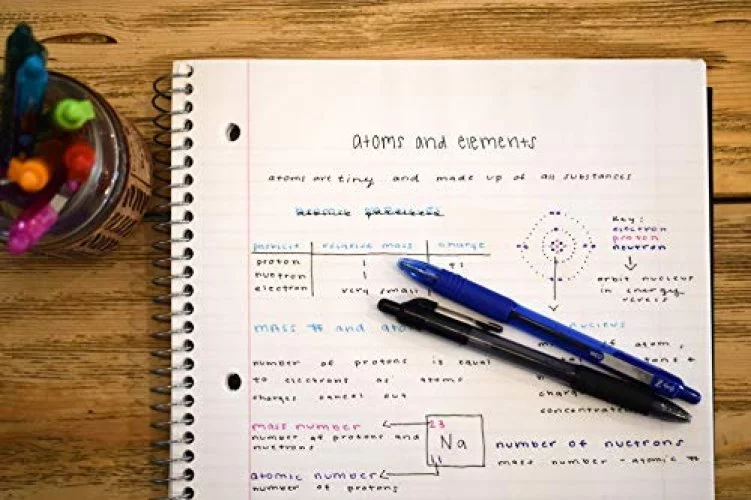 atoms and elements
atoms are tiny and made up of all substances
particle relative mass charge
proton 1 +1
nuetron 1
electron very small
Key:
electron
proton
neutron
orbit nucleus
in energy
levels
mass # and
nucleus
of atom,
number of protons is equal
to electrons as atoms
charges cancel out
mass number
number of protons and
nuetrons
23
Na
11
number of nuetrons
mass number - atomic #
atomic number
number of protons